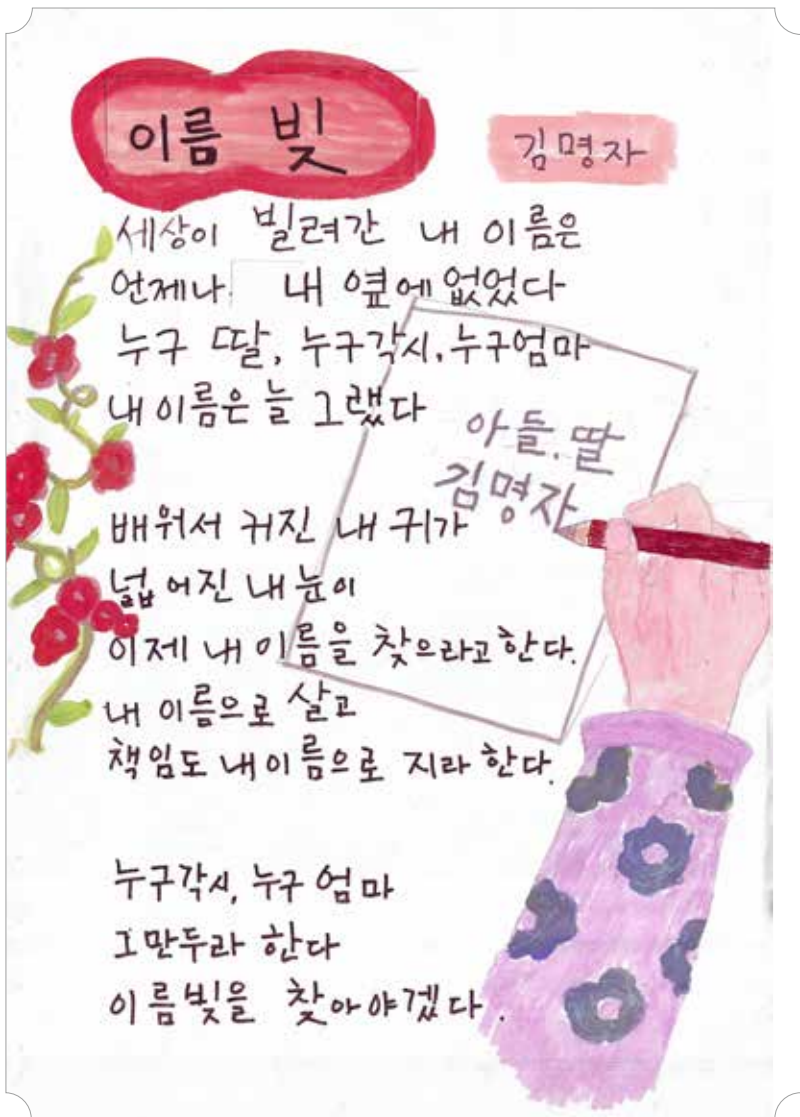 이름 빛
김명자
세상이 빌려간 내 이름은
언제나 내 옆에 없었다
누구 딸, 누구각시, 누구엄마
내 이름은 늘 그랬다
아들, 딸
김명자
배워서 커진 내 귀가
넓어진 내 눈이
이제 내 이름을 찾으라고 한다.
내 이름으로 살고
책임도 내 이름으로 지라 한다.
누구각시, 누구 엄마
그만두라 한다
이름빛을 찾아야겠다.